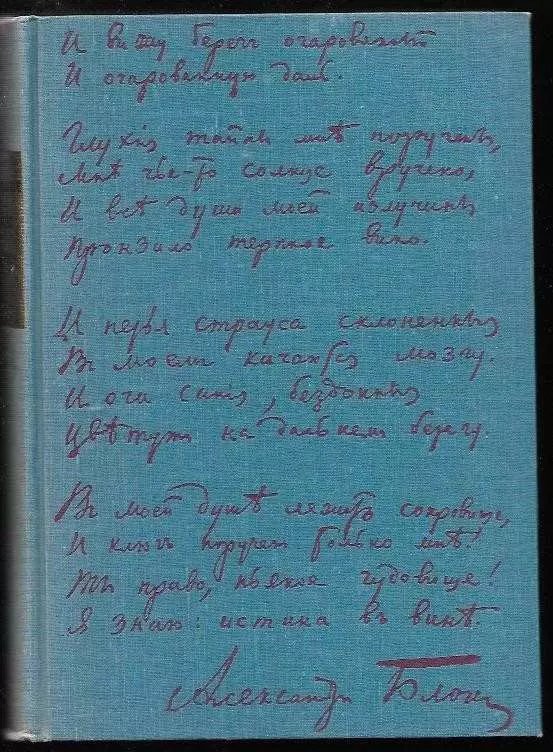 И вижу берегъ очарованный
И очарованную даль.
Глухія тайны мнѣ поручены,
Мнѣ чье-то солнце вручено,
И всѣ души моей излучины
Пронзило терпкое вино.
И перья страуса склоненныя
Въ моемъ качаются мозгу.
И очи синія, бездонныя
Цвѣтутъ на дальнемъ берегу.
Въ моей душѣ лежитъ сокровище,
И ключъ порученъ только мнѣ!
Ты право, пьяное чудовище!
Я знаю: истина въ винѣ.
Александръ Блокъ